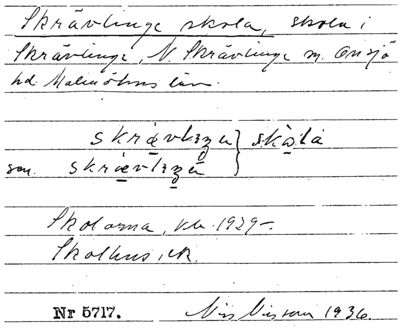 Skrävlinge skola, skola i
Skrävlinge, N. Skrävlinge m. Onsjö
hd. Malmöhus län.
skrævlıŋa } skŏla
sou. skrævlıŋa
Skolorna, 1929-.
Skolhus, ek.
Nr 5717. Nils Nilsson 1936.